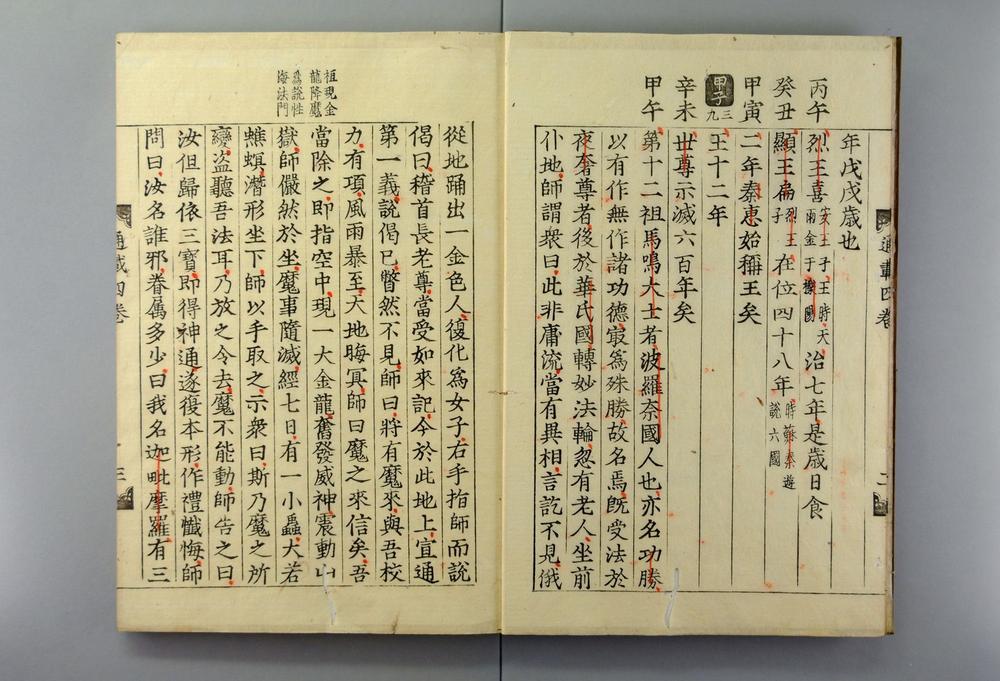 通載四卷 二
年戊戌歲也
丙午 烈王喜 安王子王時天雨金于櫟陽 治七年是歲日食
癸丑 顯王扁 烈王子 在位四十八年 時蘇秦遊說六國
甲寅 二年秦惠始稱王矣
甲子 三九 王十二年
辛未 世尊示滅六百年矣
甲午 第十二祖馬鳴大士者波羅奈國人也亦名功勝
以有作無作諸功德㝡爲殊勝故名焉旣受法於
夜奢尊者後於華氏國轉妙法輪忽有老人坐前
仆地師謂衆曰此非庸流當有異相言訖不見俄
從地踊出一金色人復化爲女子右手指師而說
偈曰稽首長老尊當受如來記今於此地上宣通
第一義說偈已瞥然不見師曰將有魔來與吾校
力有頃風雨暴至天地晦冥師曰魔之來信矣吾
祖現金
龍降魔
爲說性
海法門
當除之即指空中現一大金龍奮發威神震動山
嶽師儼然於坐魔事隨滅經七日有一小蟲大若
蟭螟潛形坐下師以手取之示衆曰斯乃魔之所
變盗聽吾法耳乃放之令去魔不能動師告之曰
汝但歸依三寶即得神通遂復本形作禮懺悔師
問曰汝名誰邪眷属多少曰我名迦毗摩羅有三
通載四卷 三